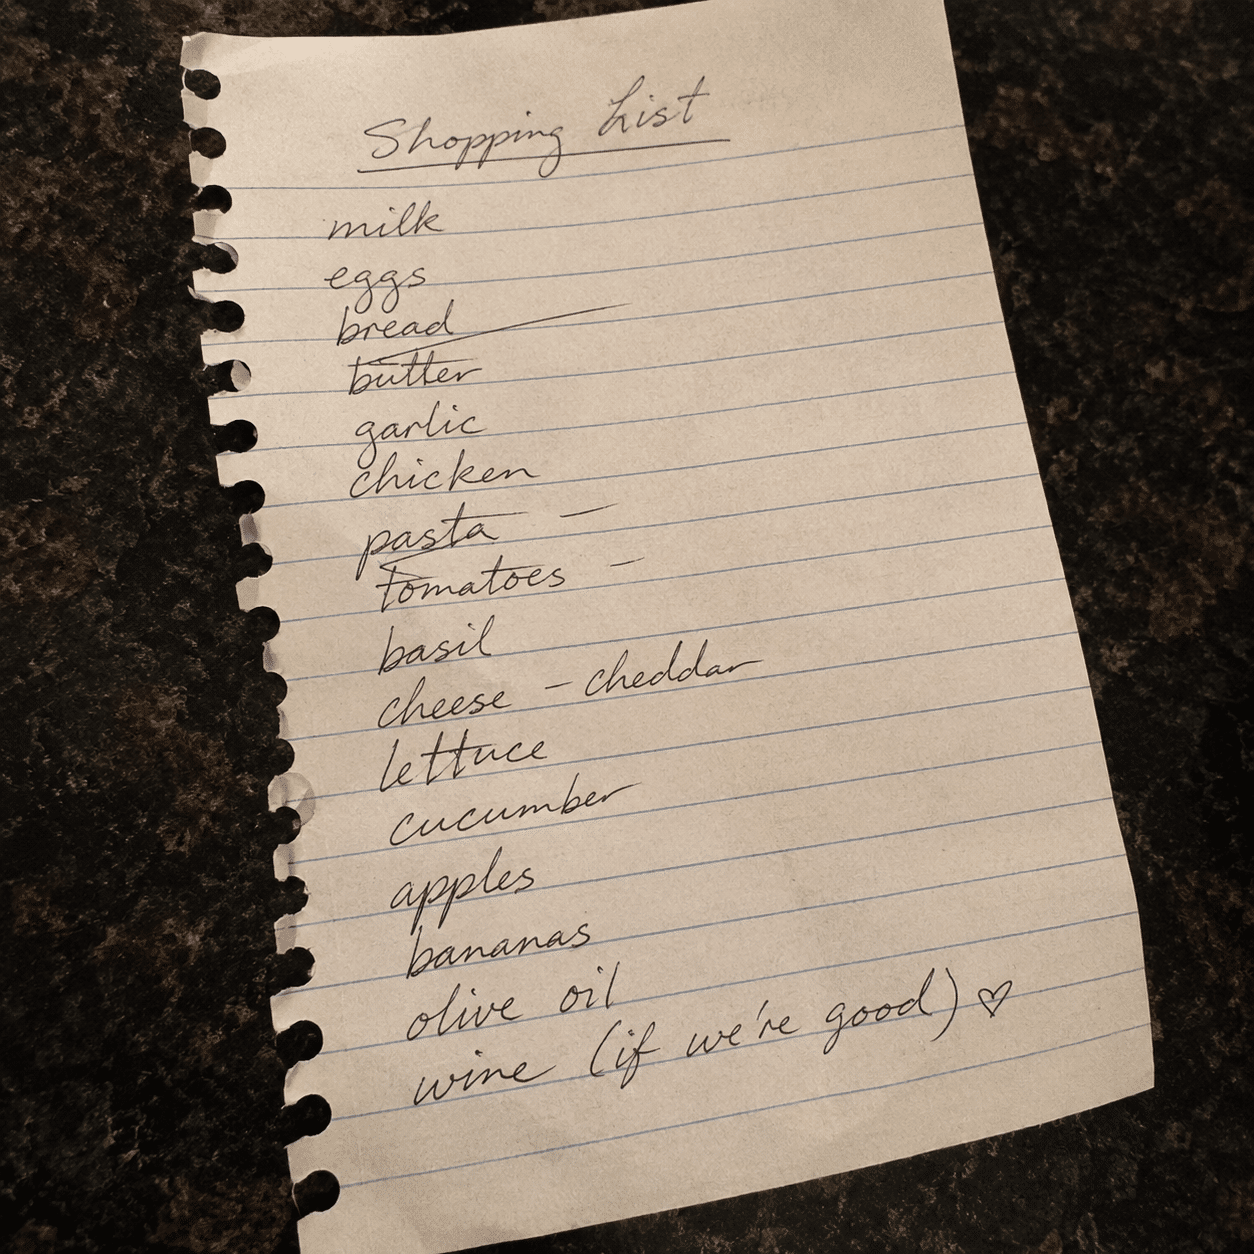 Shopping List
milk
eggs
bread
butter
garlic
chicken
pasta –
tomatoes –
basil
cheese – cheddar
lettuce
cucumber
apples
bananas
olive oil
wine (if we're good) ♡